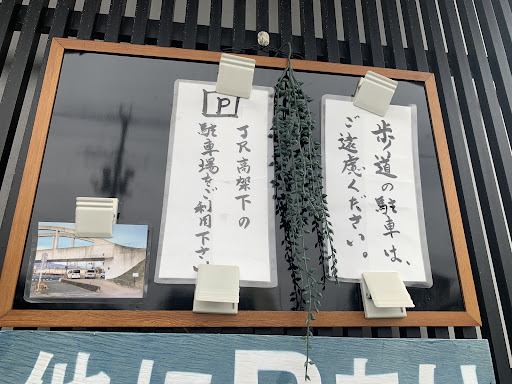 歩道の駐車は、
ご遠慮ください。
P
JR高架下の
駐車場をご利用下さい